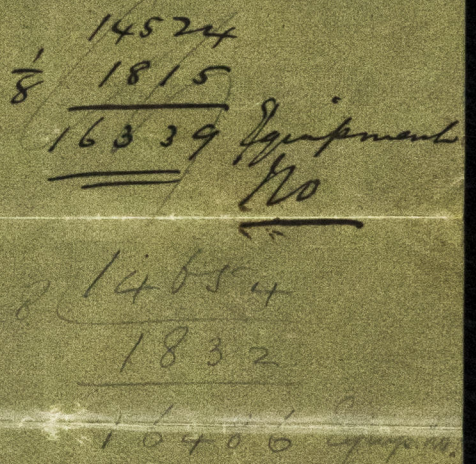 14524
1/8 1815
16339 Equipment
No
8 14654
1832
16486 Equip. no.